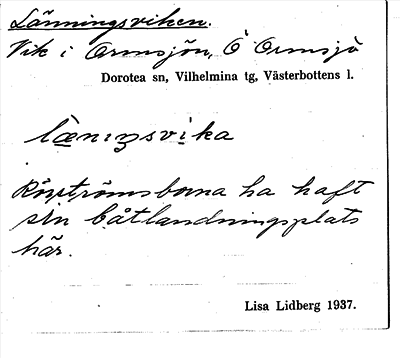 Länningsviken.
Vik i Ormsjön, Ö Ormsjö
Dorotea sn, Vilhelmina tg, Västerbottens l.
læniŋsvika
Röströmsborna ha haft
sin båtlandningsplats
här.
Lisa Lidberg 1937.